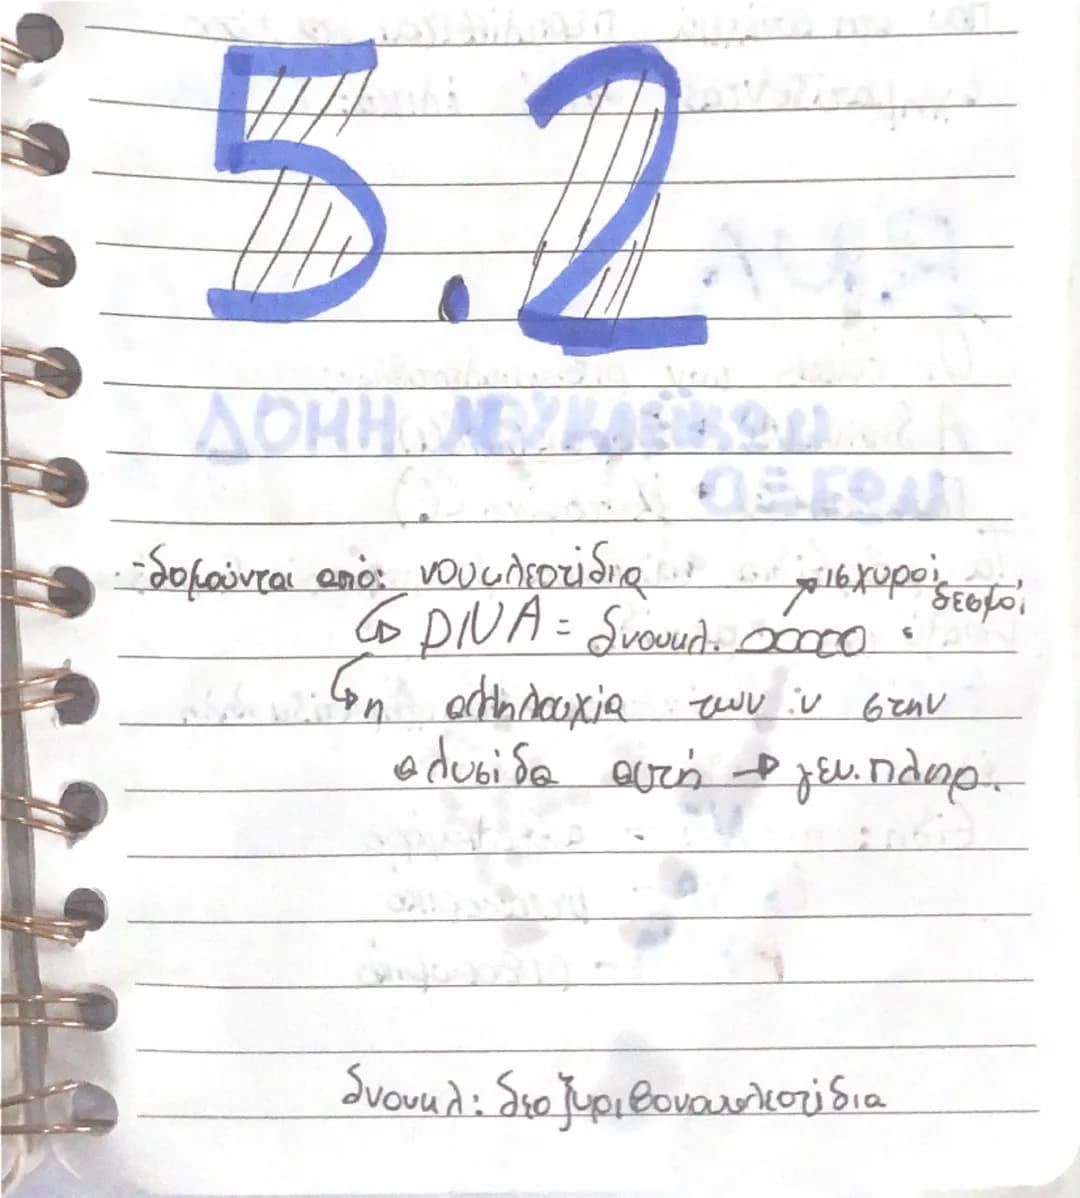 5.2
ΔΟΜΗ ΝΟΥΚΛΕΪΚΩΝ
ΟΞΕΩΝ
-δομούνται από: νουκλεοτίδια
ισχυροί
δεσμοί
DNA = δνουκλ.
η αλληλουχία των ν στην
αλυσίδα αυτή → γεν. πληρ.
δνουκλ: δεοξυριβονουκλεοτίδια